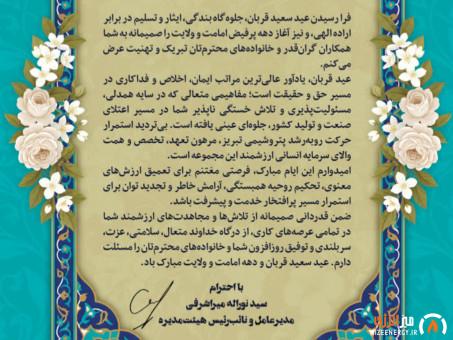 فرا رسیدن عید سعید قربان، جلوه‌گاه بندگی، ایثار و تسلیم در برابر
اراده الهی، و نیز آغاز دهه پرفیض امامت و ولایت را صمیمانه به شما
همکاران گران‌قدر و خانواده‌های محترم‌تان تبریک و تهنیت عرض
می‌کنم.
عید قربان، یادآور عالی‌ترین مراتب ایمان، اخلاص و فداکاری در
مسیر حق و حقیقت است؛ مفاهیمی متعالی که در سایه همدلی،
مسئولیت‌پذیری و تلاش خستگی ناپذیر شما در مسیر اعتلای
صنعت و تولید کشور، جلوه‌ای عینی یافته است. بی‌تردید استمرار
حرکت روبه‌رشد پتروشیمی تبریز، مرهون تعهد، تخصص و همت
والای سرمایه انسانی ارزشمند این مجموعه است.
امیدوارم این ایام مبارک، فرصتی مغتنم برای تعمیق ارزش‌های
معنوی، تحکیم روحیه همبستگی، آرامش خاطر و تجدید توان برای
استمرار مسیر پرافتخار خدمت و پیشرفت باشد.
ضمن قدردانی صمیمانه از تلاش‌ها و مجاهدت‌های ارزشمند شما
در تمامی عرصه‌های کاری، از درگاه خداوند متعال، سلامتی، عزت،
سربلندی و توفیق روزافزون شما و خانواده‌های محترم‌تان را مسئلت
دارم. عید سعید قربان و دهه امامت و ولایت مبارک باد.
با احترام
سید نوراله میراشرفی
مدیرعامل و نائب‌رئیس هیئت‌مدیره
WIZEENERGY.IR